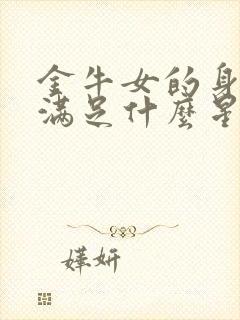 金牛女的身
满足什麼星
嬅妍